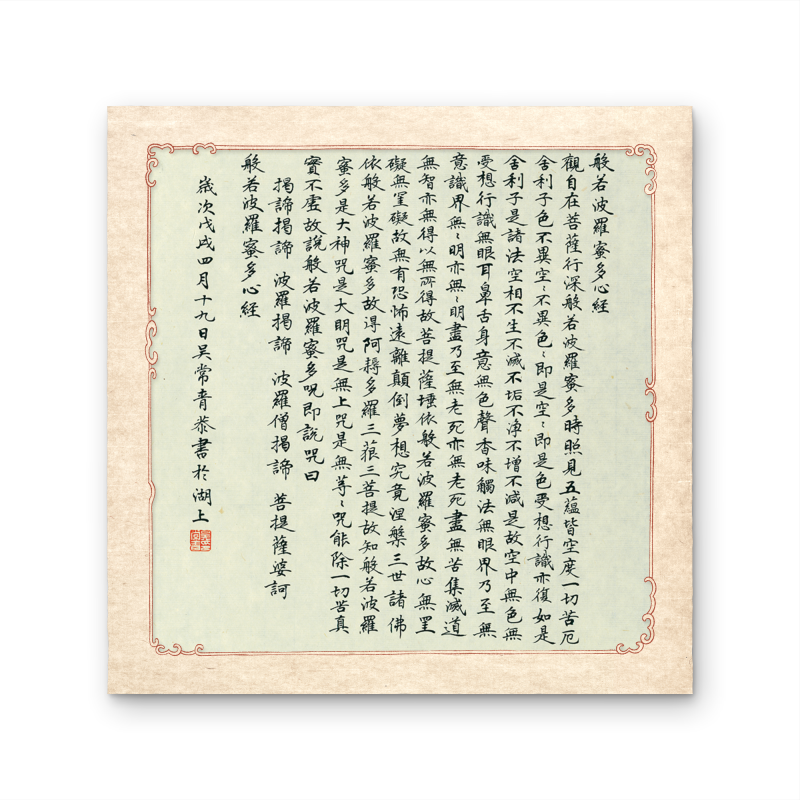 般若波羅蜜多心経
觀自在菩薩行深般若波羅蜜多時照見五蘊皆空度一切苦厄
舍利子色不異空〻不異色〻即是空〻即是色受想行識亦復如是
舍利子是諸法空相不生不滅不垢不浄不增不減是故空中無色無
受想行識無眼耳鼻舌身意無色聲香味觸法無眼界乃至無
意識界無〻明亦無〻明盡乃至無老死亦無老死盡無苦集滅道
無智亦無得以無所得故菩提薩埵依般若波羅蜜多故心無罣
礙無罣礙故無有恐怖遠離顛倒夢想究竟涅槃三世諸佛
依般若波羅蜜多故得阿耨多羅三藐三菩提故知般若波羅
蜜多是大神咒是大明咒是無上咒是無等〻咒能除一切苦真
實不虛故說般若波羅蜜多咒即說咒曰
揭諦揭諦 波羅揭諦 波羅僧揭諦 菩提薩婆訶
般若波羅蜜多心経
歲次戊戌四月十九日吴常青恭書於湖上